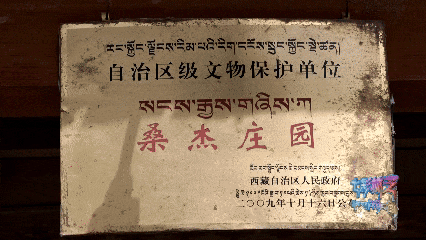 རང་སྐྱོང་ལྗོངས་རིམ་པའི་རིག་དངོས་སྲུང་སྐྱོང་སྡེ་ཚན།
自治区级文物保护单位
སངས་རྒྱས་གཞིས་ཀ
桑杰庄园
西藏自治区人民政府
二〇〇九年十月十六日公